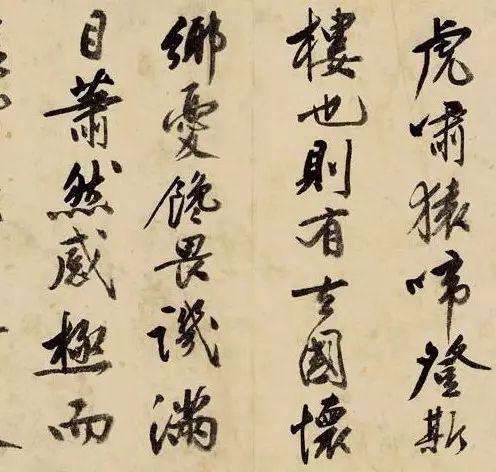 虎嘯猿啼登斯
樓也則有去國懷
鄉憂饞畏譏滿
目蕭然感極而